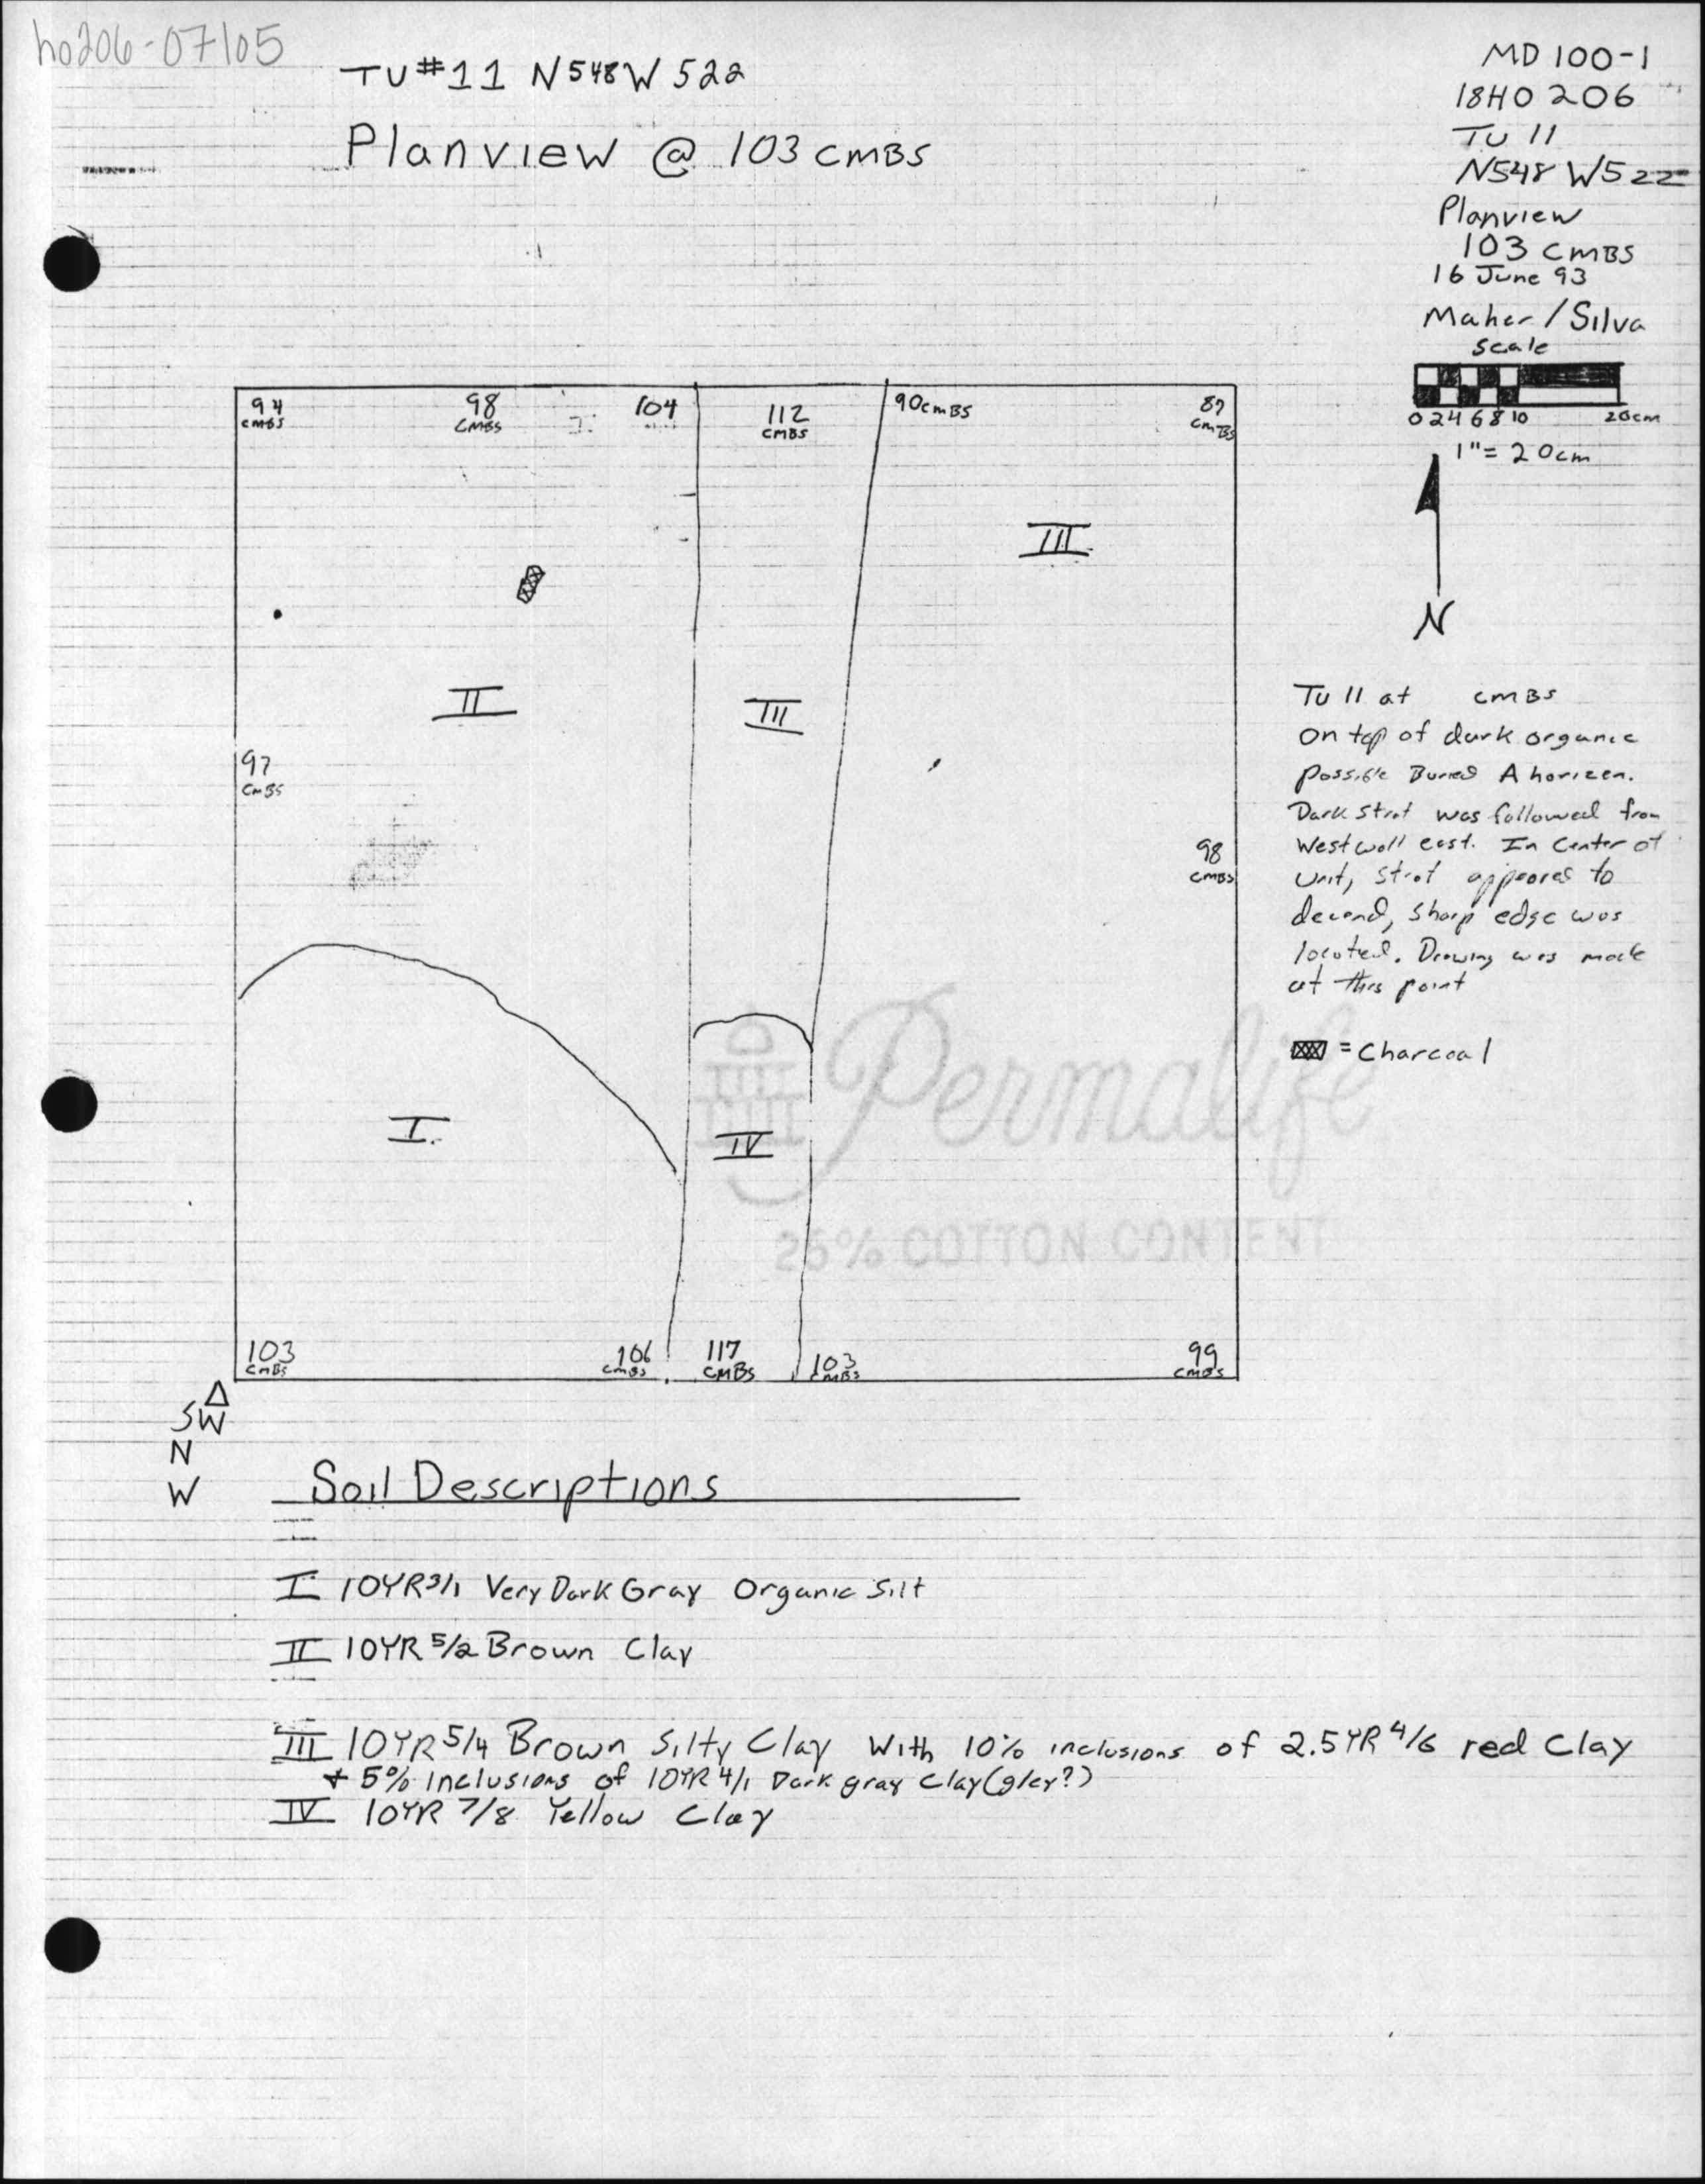 ho206-07105
TU#11 N548 W522
Planview @ 103 CMBS
MD 100-1
18HO 206
TU 11
N548 W522
Planview
103 CMBS
16 June 93
Maher / Silva
Scale
0 2 4 6 8 10 20cm
1" = 20cm
N
94 CMBS
98 CMBS
104
112 CMBS
90cmBS
87 CmBS
III
II
III
97 CmBS
98 CMBS
I.
IV
103 CMBS
106 CMBS
117 CMBS
103 CMBS
99 CMBS
TU 11 at CMBS
on top of dark organic
possible Buried A horizen.
Dark Strat was followed from
West wall east. In Center of
Unit, Strat appeared to
decend, sharp edge was
located. Drawing was made
at this point
= Charcoal
Permalife
25% COTTON CONTENT
SW
N
W
Soil Descriptions
I 10YR3/1 Very Dark Gray Organic Silt
II 10YR 5/2 Brown Clay
III 10YR 5/4 Brown Silty Clay With 10% inclusions of 2.5YR 4/6 red Clay
+ 5% inclusions of 10YR 4/1 Dark gray Clay (gley?)
IV 10YR 7/8 Yellow Clay